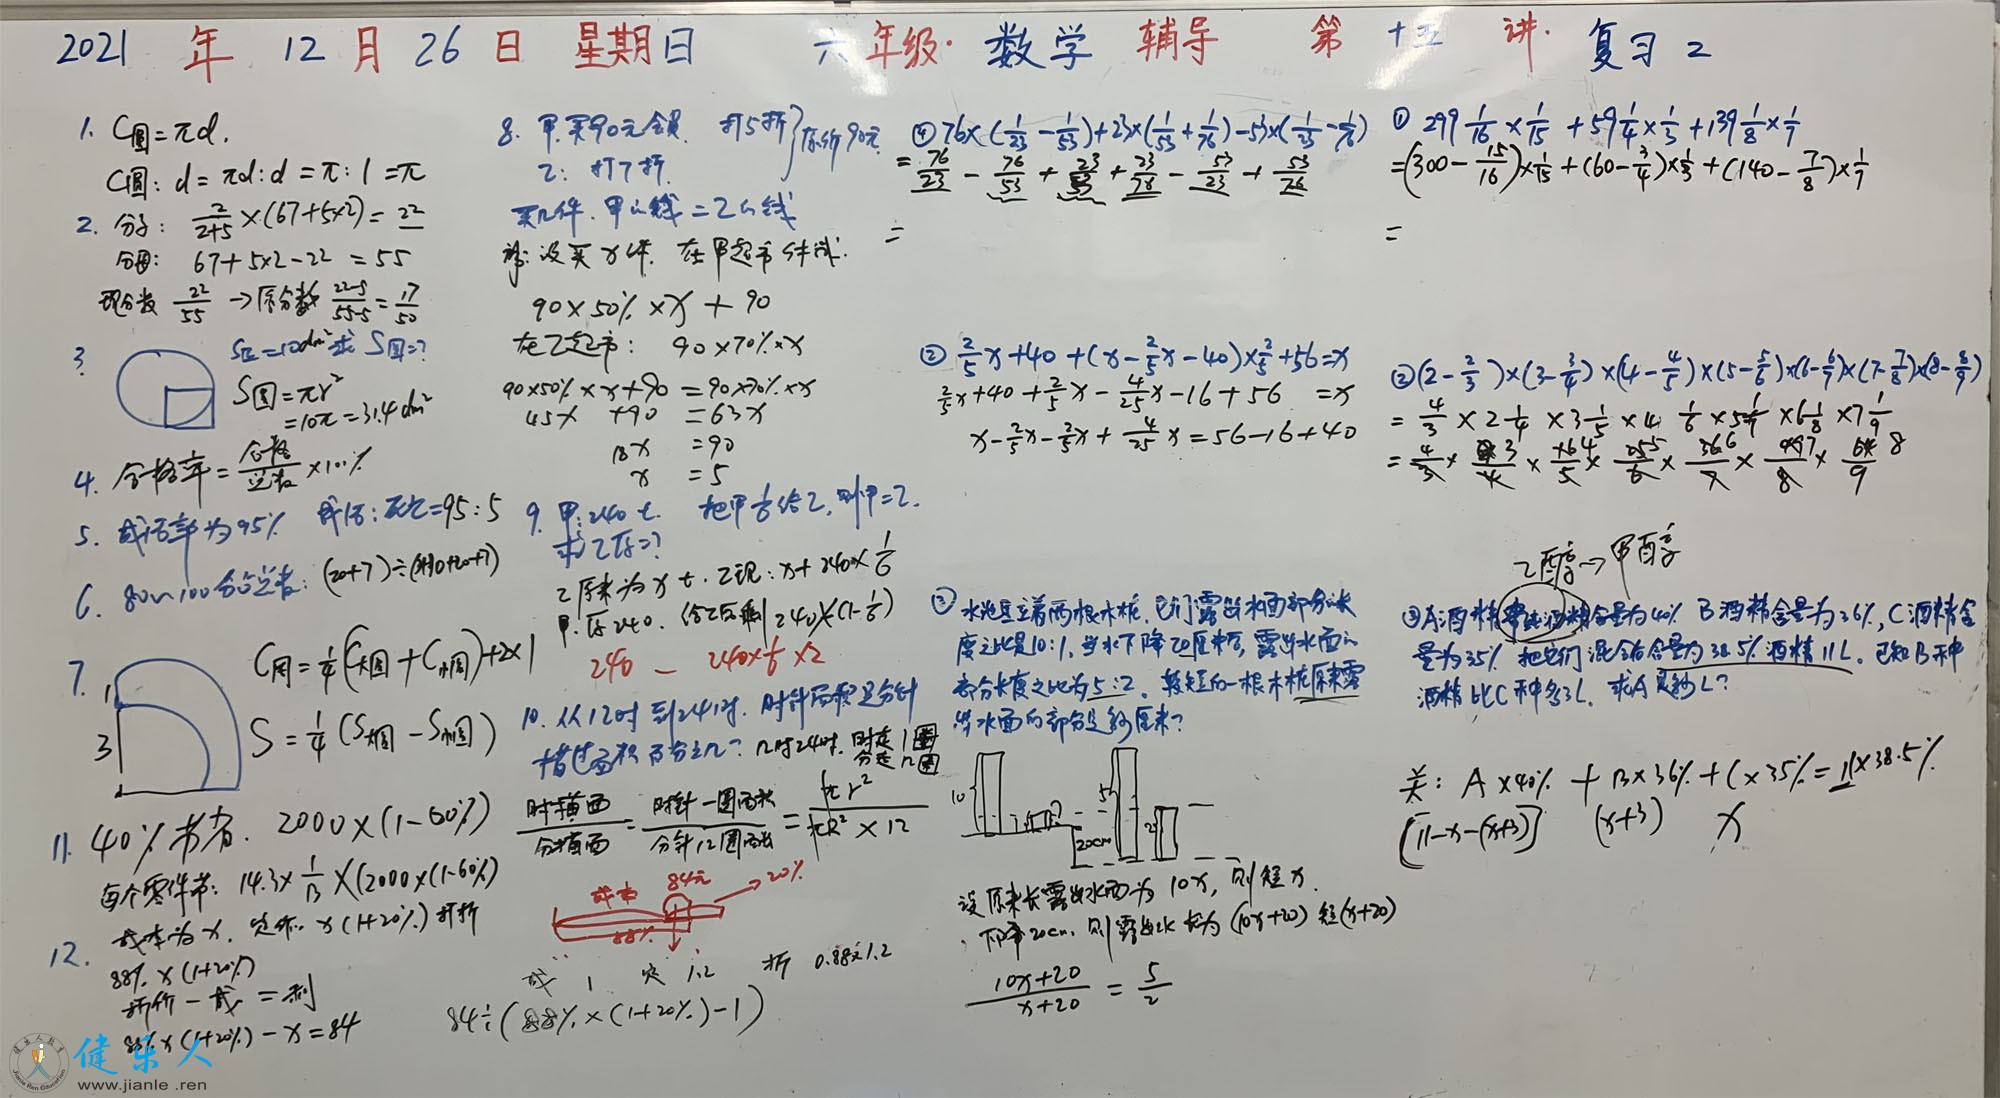 2021 年 12 月 26 日 星期日 六年级·数学 辅导 第 十五 讲·复习 2
1. C圆=πd.
C圆:d=πd:d=π:1=π
2. 分子: 2/(2+5)×(67+5×2)=22
分母: 67+5×2-22=55
现分数 22/55 →原分数 (22-5)/(55-5)=17/50
3. S正=10dm² 求 S圆=?
S圆=πr²
=10π=31.4dm²
4. 合格率=合格/总数×100%
5. 成活率为95% 成活:死亡=95:5
6. 80~100分占总数: (20+7)÷
7. 1
3
C周=1/4(C大圆+C小圆)+2×1
S=1/4(S大圆-S小圆)
11. 40%节省. 2000×(1-60%)
每个零件节: 14.3×1/13×(2000×(1-60%)
12. 成本为x, 定价: x(1+20%) 打折
88%×(1+20%)
折价-成=利
88%×(1+20%)-x=84
8. 甲:买90元会员 打5折 原价90元
乙: 打7折.
买几件.甲的钱=乙的钱
解:设买x件. 在甲超市
90×50%×x+90
在乙超市: 90×70%×x
90×50%×x+90=90×70%×x
45x+90=63x
18x=90
x=5
9. 甲:240t. 把甲1/6给乙,则甲=乙.
求乙原=?
乙原来为xt. 乙现:x+240×1/6
甲原240. 给乙后剩240×(1-1/6)
240-240×1/6×2
10. 从12时到24时. 时针面积是分针
扫过面积百分之几? 12时24时. 时走1圈
分走12圈
时扫面/分扫面=时针一圈面积/分针12圈面积=πr²/πR²×12
成本 84元 20%
88%
成 1 定 1.2 折 0.88×1.2
84÷(88%×(1+20%)-1)
④ 76×(1/23-1/53)+23×(1/53+1/76)-53×(1/23-1/76)
=76/23-76/53+23/53+23/78-53/23+53/76
=
② 2/5x+40+(x-2/5x-40)×2/5+56=x
2/5x+40+2/5x-4/25x-16+56=x
x-2/5x-2/5x+4/25x=56-16+40
③ 水池里立着两根木桩.它们露出水面部分的长
度之比是10:1,当水下降20厘米后,露出水面的
部分长度之比为5:2. 较短的一根木桩原来露
出水面的部分是多少厘米?
10 1 20cm 5 2
设原来长露出水面为10x,则短x.
下降20cm.则露出水长为(10x+20) 短(x+20)
(10x+20)/(x+20)=5/2
① 299 1/16×1/15+59 1/4×1/3+139 1/8×1/7
=(300-15/16)×1/15+(60-3/4)×1/3+(140-7/8)×1/7
=
②(2-2/3)×(3-3/4)×(4-4/5)×(5-5/6)×(6-6/7)×(7-7/8)×(8-8/9)
=4/3×2 1/4×3 1/5×4 1/6×5 1/7×6 1/8×7 1/9
乙醇→甲醇
③A酒精 含量为40% B酒精含量为36%,C酒精含
量为35% 把它们混合后含量为38.5%酒精11L. 已知B种
酒精比C种多3L. 求A是多少L?
关: A×40%+B×36%+C×35%=11×38.5%
[11-x-(x+3)] (x+3) x
健乐人教育
Jianle Ren Education
健乐人
www.jianle .ren